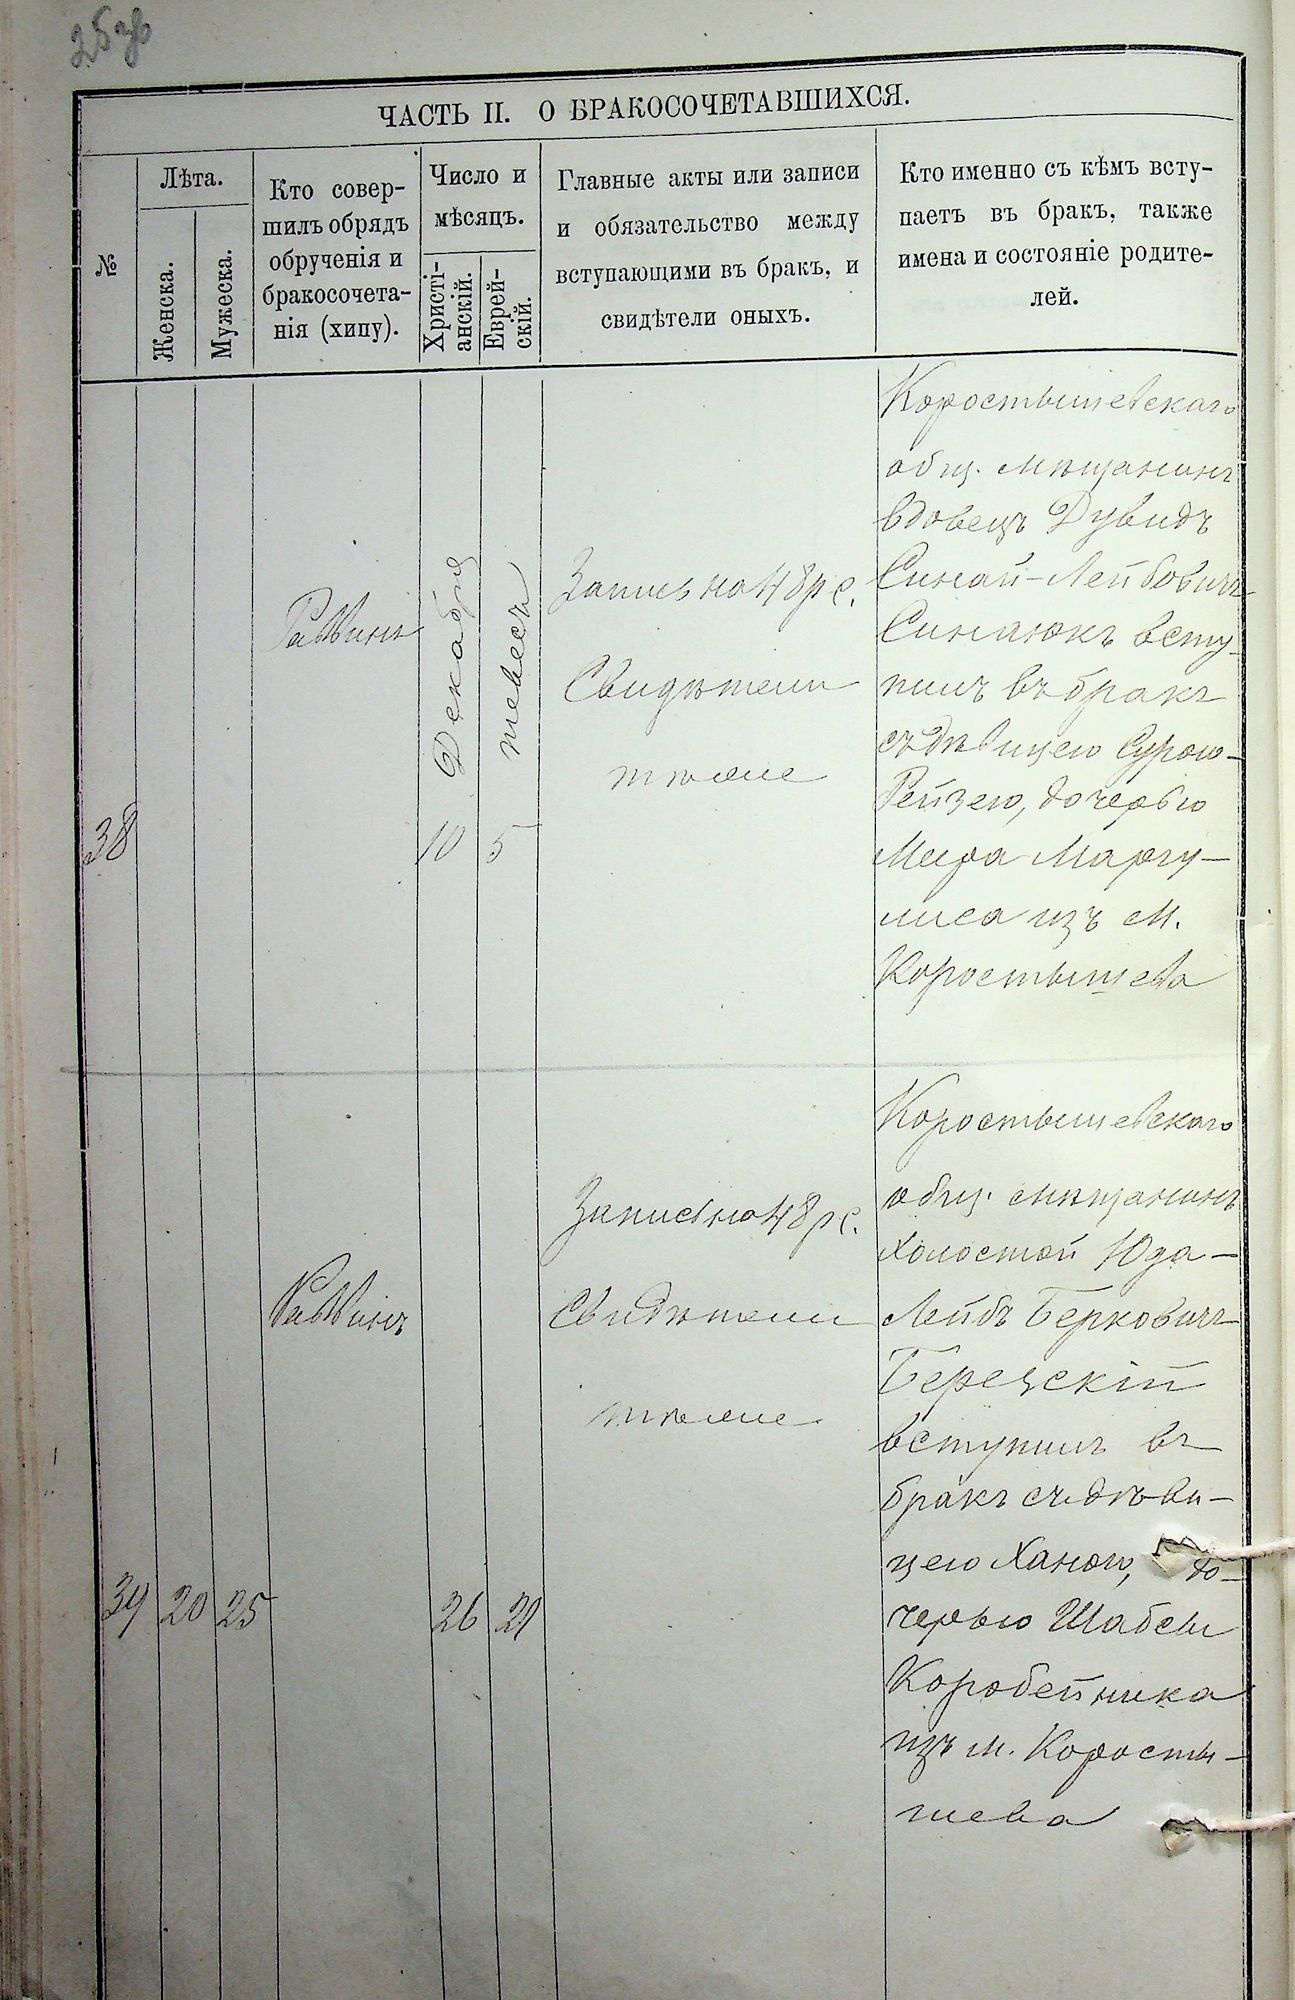 25
ЧАСТЬ II. О БРАКОСОЧЕТАВШИХСЯ.
№
Лѣта.
Женска.
Мужеска.
Кто совер-
шилъ обрядъ
обрученія и
бракосочета-
нія (хипу).
Число и
мѣсяцъ.
Христі-
анскій.
Еврей-
скій.
Главные акты или записи
и обязательство между
вступающими въ бракъ, и
свидѣтели оныхъ.
Кто именно съ кѣмъ всту-
паетъ въ бракъ, также
имена и состояніе родите-
лей.
38
Раввинъ
Декабря
10
тевесъ
5
Запись на 48 р с.
Свидѣтели
тѣже
Коростышевскаго
общ. мѣщанинъ
вдовецъ Дувидъ
Синай-Лейбовичъ
Синаюкъ всту-
пилъ въ бракъ
съ дѣвицею Сурою-
Рейзею, дочерью
Меира Маргу-
лиса изъ м.
Коростышева
39
20
25
Раввинъ
26
21
Запись на 48 р с.
Свидѣтели
тѣже
Коростышевскаго
общ. мѣщанинъ
холостой Юда-
Лейбъ Берковичъ
Березскій
вступилъ въ
бракъ съ дѣви-
цею Ханою, до-
черью Шабсы
Коробейника
изъ м. Коросты-
шева